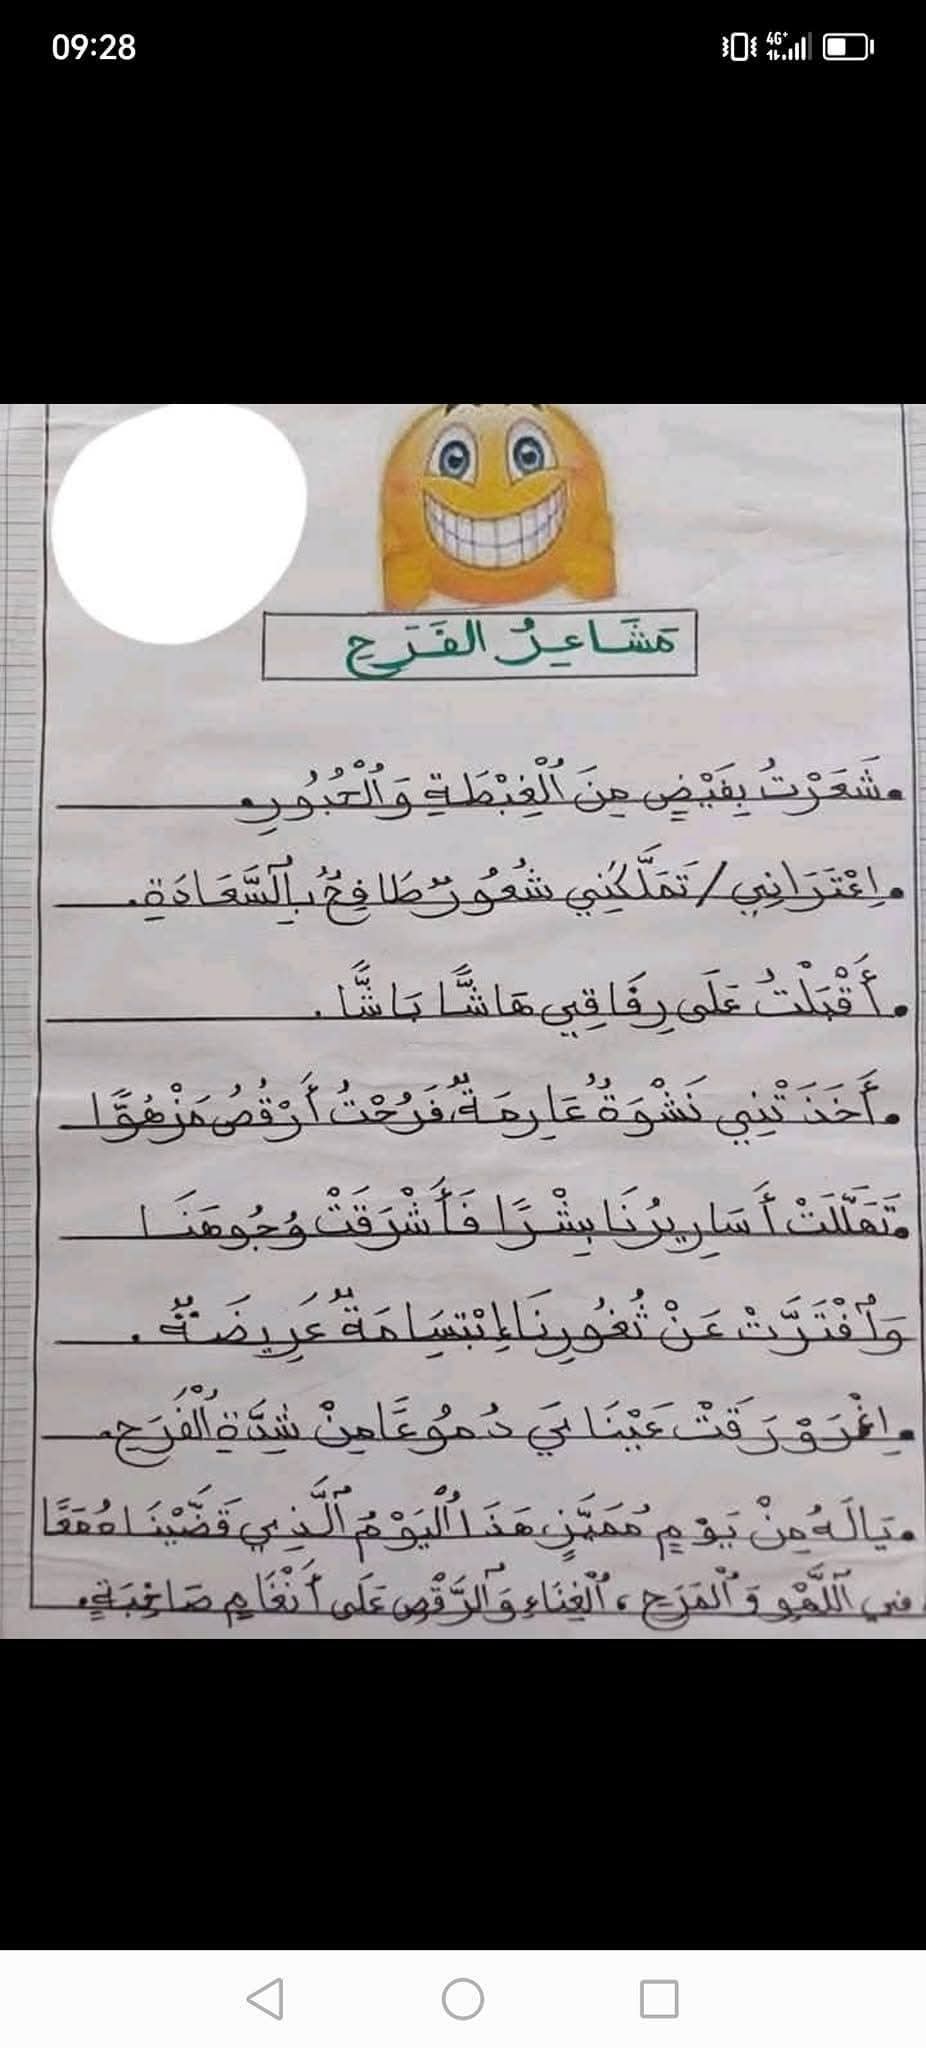 09:28
4G+
مَشَاعِرُ الفَرَحِ
.شَعَرْتُ بِفَيْضٍ مِنَ ٱلْغِبْطَةِ وَٱلْحُبُورِ.
.اِعْتَرَانِي/تَمَلَّكَنِي شُعُورٌ طَافِحٌ بِٱلسَّعَادَةِ.
.أَقْبَلْتُ عَلَى رِفَاقِي هَاشًّا بَاشًّا.
.أَخَذَتْنِي نَشْوَةٌ عَارِمَةٌ، فَرُحْتُ أَرْقُصُ مَزْهُوًّا
.تَهَلَّلَتْ أَسَارِيرُنَا بِشْرًا فَأَشْرَقَتْ وُجُوهَنَا
وَٱفْتَرَّتْ عَنْ ثُغُورِنَا إِبْتِسَامَةٌ عَرِيضَةٌ.
.اِغْرَوْرَقَتْ عَيْنَايَ دُمُوعًا مِنْ شِدَّةِ ٱلْفَرَحِ.
.يَالَهُ مِنْ يَوْمٍ مُمَيَّزٍ هَذَا ٱلْيَوْمُ ٱلَّذِي قَضَّيْنَاهُ مَعًا
فِي ٱللَّهْوِ وَٱلْمَرَحِ، ٱلْغِنَاءِ وَٱلرَّقْصِ عَلَى أَنْغَامٍ صَاخِبَةٍ.